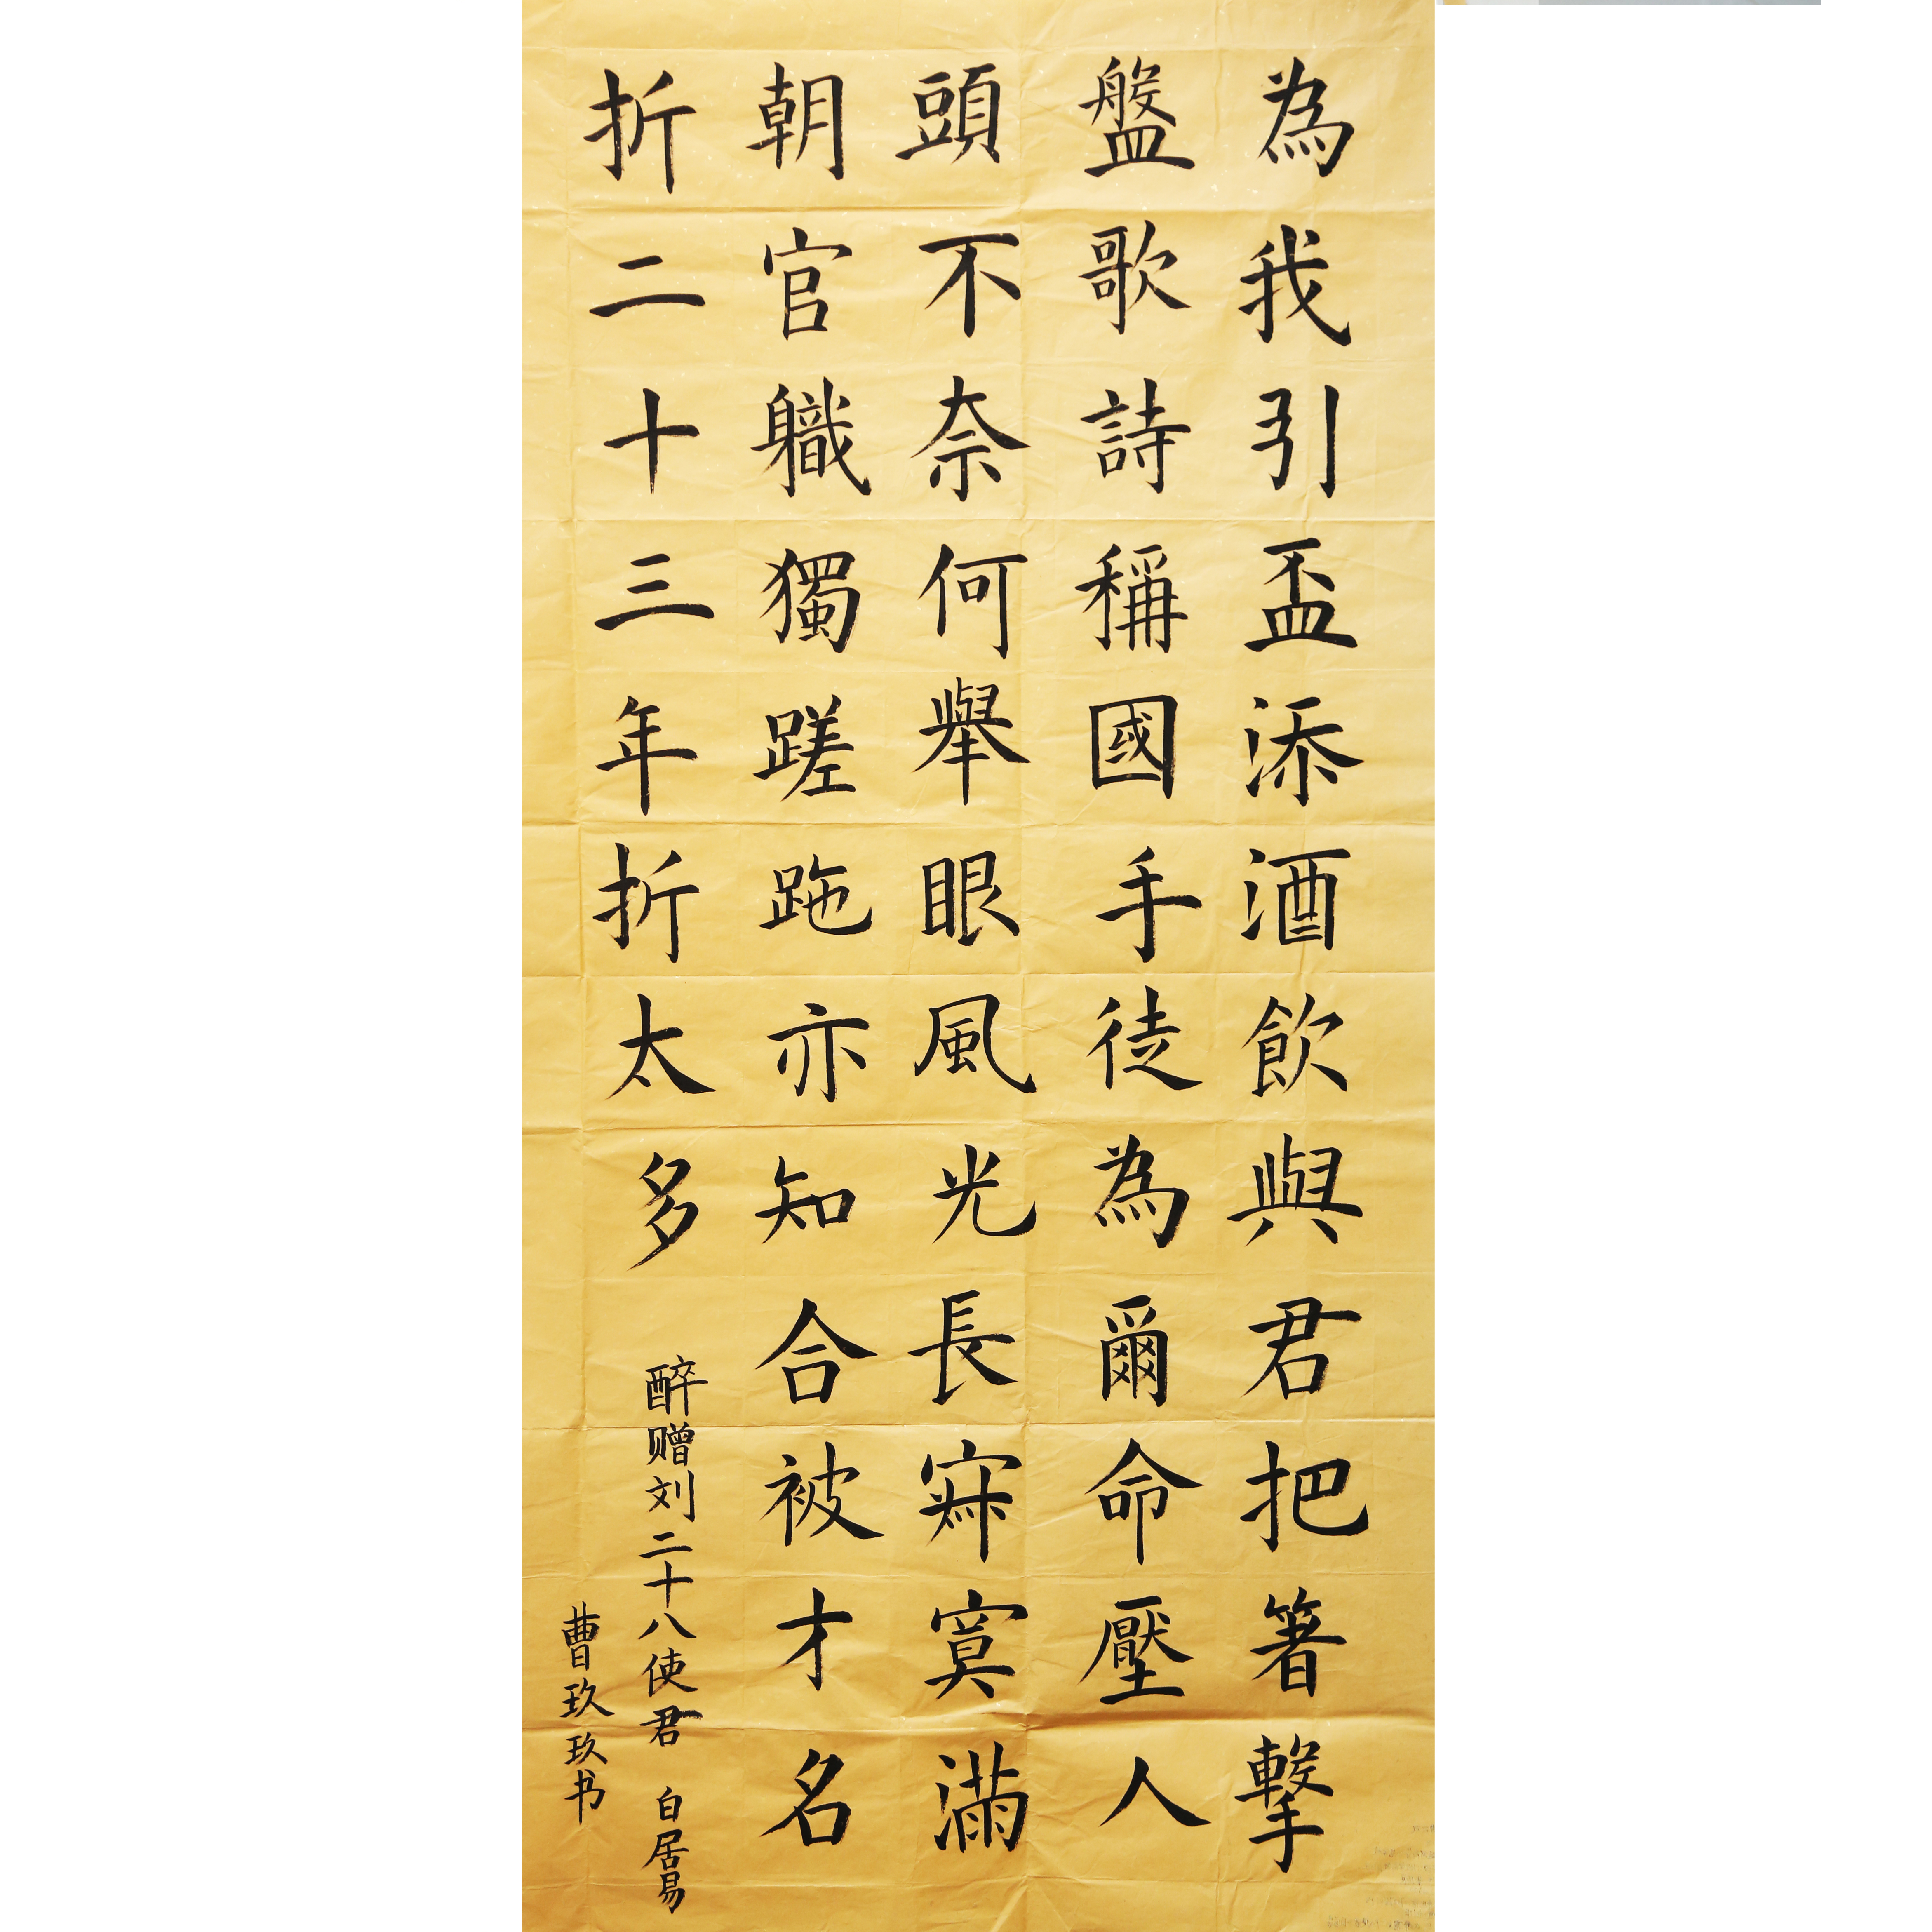 為我引盃添酒飲與君把箸擊
盤歌詩稱國手徒為爾命壓人
頭不奈何舉眼風光長寂寞滿
朝官職獨蹉跎亦知合被才名
折二十三年折太多
醉赠刘二十八使君 白居易
曹玖玖书